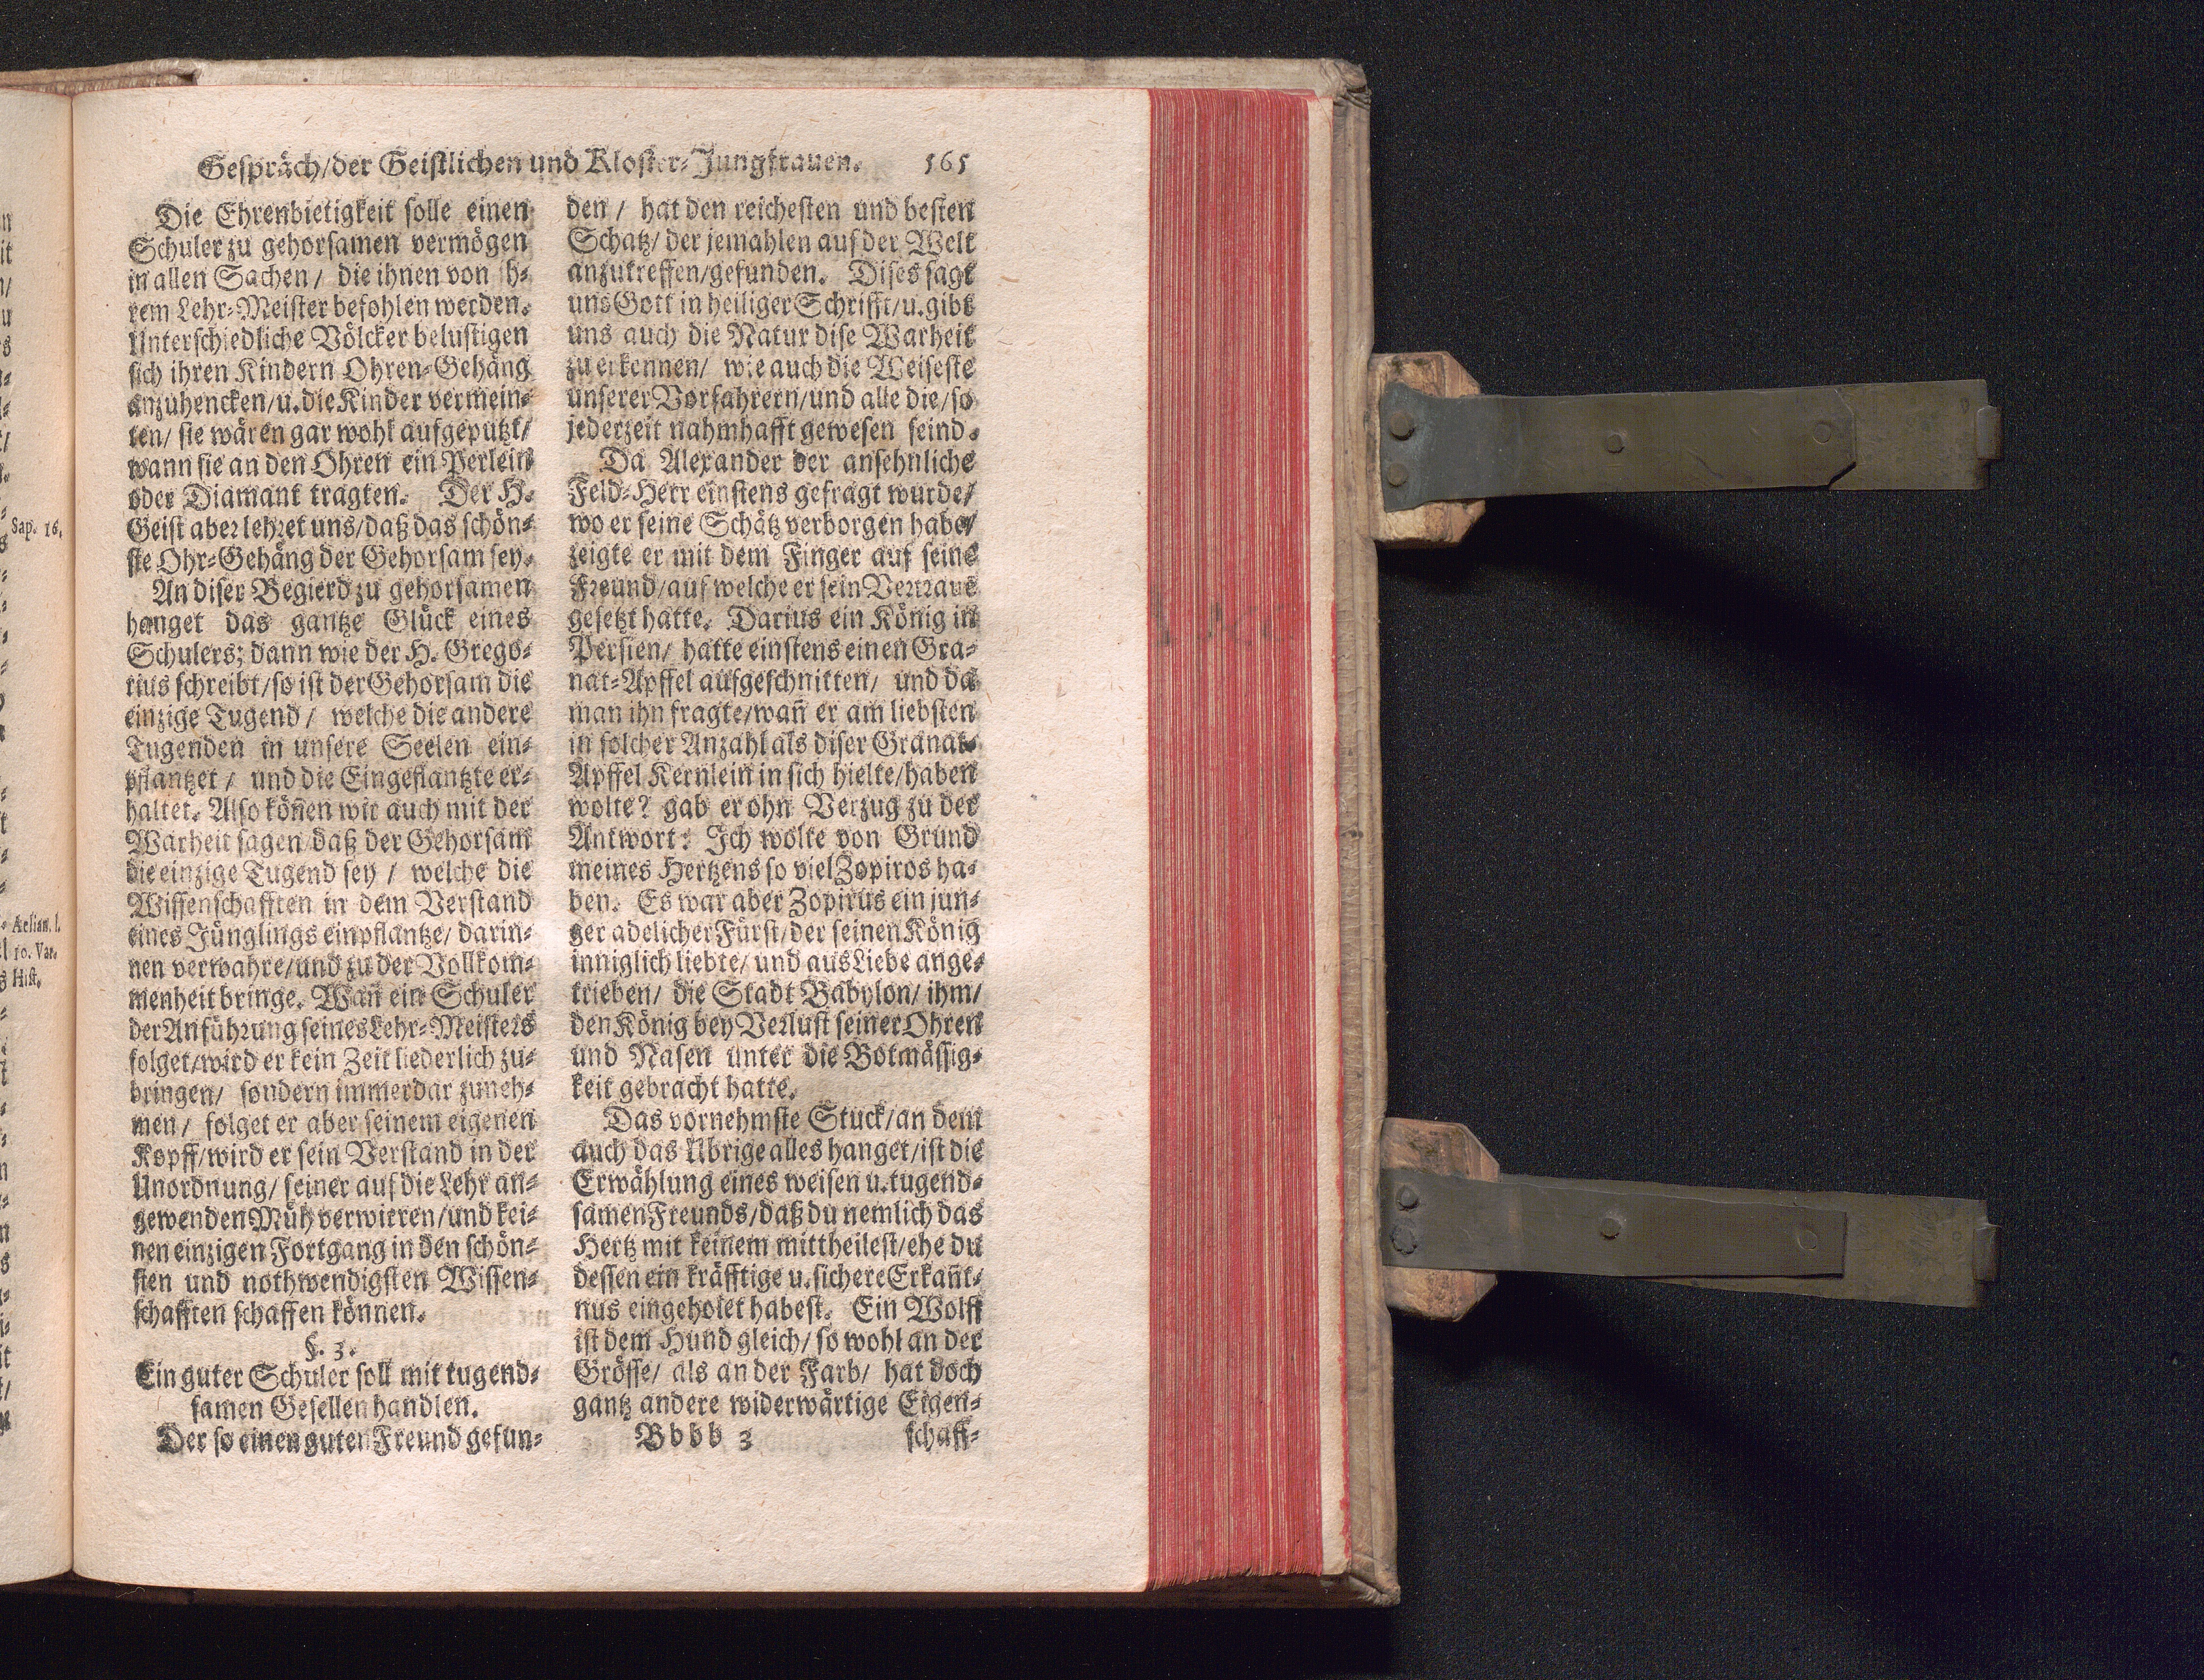 Gespräch/der Geistlichen und Kloster-Jungfrauen. 565
Die Ehrenbietigkeit solle einen
Schuler zu gehorsamen vermögen
in allen Sachen/ die ihnen von ih-
rem Lehr-Meister befohlen werden.
Unterschiedliche Völcker belustigen
sich ihren Kindern Ohren-Gehäng
anzuhencken/u. die Kinder vermein-
ten/ sie wären gar wohl aufgeputzt/
wann sie an den Ohren ein Perlein
oder Diamant tragten. Der H.
Geist aber lehret uns/daß das schön-
ste Ohr-Gehäng der Gehorsam sey.
An diser Begierd zu gehorsamen
hanget das gantze Glück eines
Schulers; dann wie der H. Grego-
rius schreibt/so ist der Gehorsam die
einzige Tugend/ welche die andere
Tugenden in unsere Seelen ein-
pflantzet/ und die Eingeflantzte er-
haltet. Also köñen wir auch mit der
Warheit sagen/daß der Gehorsam
die einzige Tugend sey/ welche die
Wissenschafften in dem Verstand
eines Jünglings einpflantze/ darin-
nen verwahre/und zu der Vollkom-
menheit bringe. Wañ ein Schuler
der Anführung seines Lehr-Meisters
folget/wird er kein Zeit liederlich zu-
bringen/ sondern immerdar zuneh-
men/ folget er aber seinem eigenen
Kopff/wird er sein Verstand in der
Unordnung/ seiner auf die Lehr an-
gewenden Müh verwirren/und kei-
nen einzigen Fortgang in den schön-
sten und nothwendigsten Wissen-
schafften schaffen können.
§. 3.
Ein guter Schuler soll mit tugend-
samen Gesellen handlen.
Der so einen guten Freund gefun-
den/ hat den reichesten und besten
Schatz/ der jemahlen auf der Welt
anzutreffen/gefunden. Dises sagt
uns Gott in heiliger Schrifft/u. gibt
uns auch die Natur dise Warheit
zu erkennen/ wie auch die Weiseste
unserer Vorfahrern/und alle die/so
jederzeit nahmhafft gewesen seind.
Da Alexander der ansehnliche
Feld-Herr einstens gefragt wurde/
wo er seine Schätz verborgen habe/
zeigte er mit dem Finger auf seine
Freund/auf welche er sein Vertraue
gesetzt hatte. Darius ein König in
Persien/ hatte einstens einen Gra-
nat-Apffel aufgeschnitten/ und da
man ihn fragte/wañ er am liebsten
in solcher Anzahl als diser Granat-
Apffel Kernlein in sich hielte/haben
wolte? gab er ohn Verzug zu der
Antwort: Ich wolte von Grund
meines Hertzens so viel Zopiros ha-
ben. Es war aber Zopirus ein jun-
ger adelicher Fürst/der seinen König
inniglich liebte/ und aus Liebe ange-
trieben/ die Stadt Babylon/ ihm/
den König bey Verlust seiner Ohren
und Nasen unter die Botmässig-
keit gebracht hatte.
Das vornehmste Stuck/an dem
auch das Übrige alles hanget/ist die
Erwählung eines weisen u. tugend-
samen Freunds/daß du nemlich das
Hertz mit keinem mittheilest/ehe du
dessen ein kräfftige u. sichere Erkañt-
nus eingeholet habest. Ein Wolff
ist dem Hund gleich/ so wohl an der
Grösse/ als an der Farb/ hat doch
gantz andere widerwärtige Eigen-
Bbbb 3 schaff-
Sap. 16.
Aelian. l.
10. Var.
Hist.